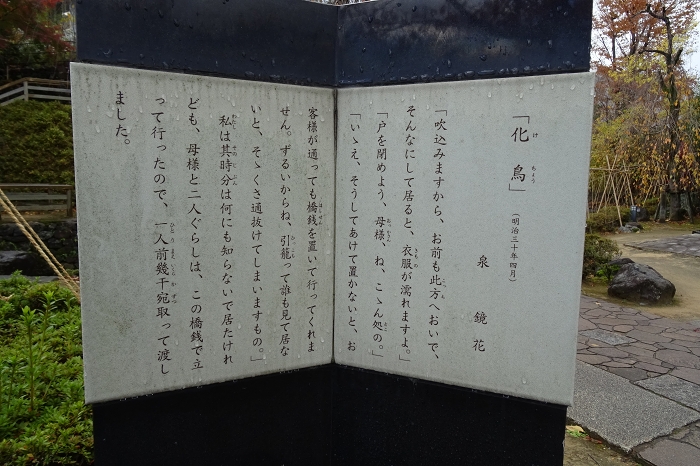 「化鳥」（明治三十年四月）
泉鏡花
「吹込みますから、お前も此方へおいで、
そんなにして居ると、衣服が濡れますよ。」
「戸を閉めよう、母様、ね、こゝん処の。」
「いゝえ、そうしてあけて置かないと、お
客様が通っても橋銭を置いて行ってくれま
せん。ずるいからね、引籠って誰も見て居な
いと、そゝくさ通抜けてしまいますもの。」
私は其時分は何にも知らないで居たけれ
ども、母様と二人ぐらしは、この橋銭で立
って行ったので、一人前幾干宛取って渡し
ました。